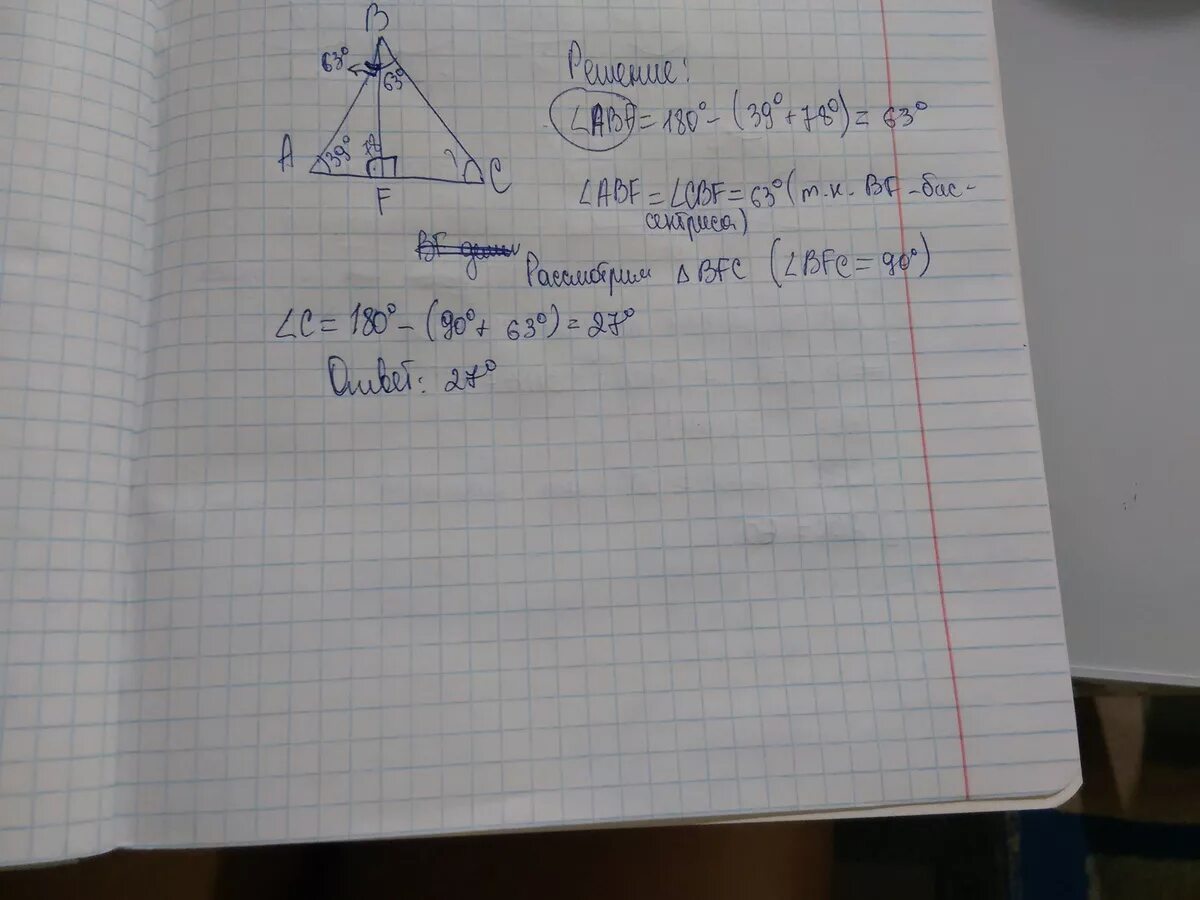 B
63°
63°
A
39°
78°
C
F
Решение:
∠ABF = 180° - (39° + 78°) = 63°
∠ABF = ∠CBF = 63° (т.к. BF - бис-
сектриса)
Рассмотрим △ BFC (∠BFC = 90°)
∠C = 180° - (90° + 63°) = 27°
Ответ: 27°